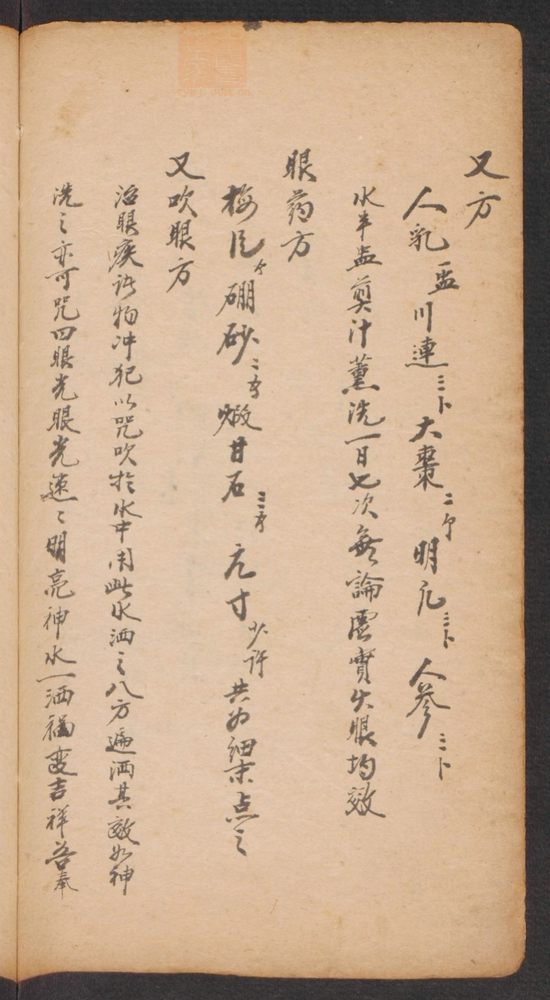 又方
人乳一盃川連三卜大棗二个明凡三卜人參三卜
水半盃煎汁薰洗一日七次無論虛實火眼均效
眼药方
梅片 硼砂二 煅甘石三 元寸少许 共为細末点之
又吹眼方
治眼疾訞物冲犯以咒吹於水中用此水洒之八方遍洒其效如神
洗之亦可咒曰眼光眼光速〻明亮神水一洒禍变吉祥吾奉